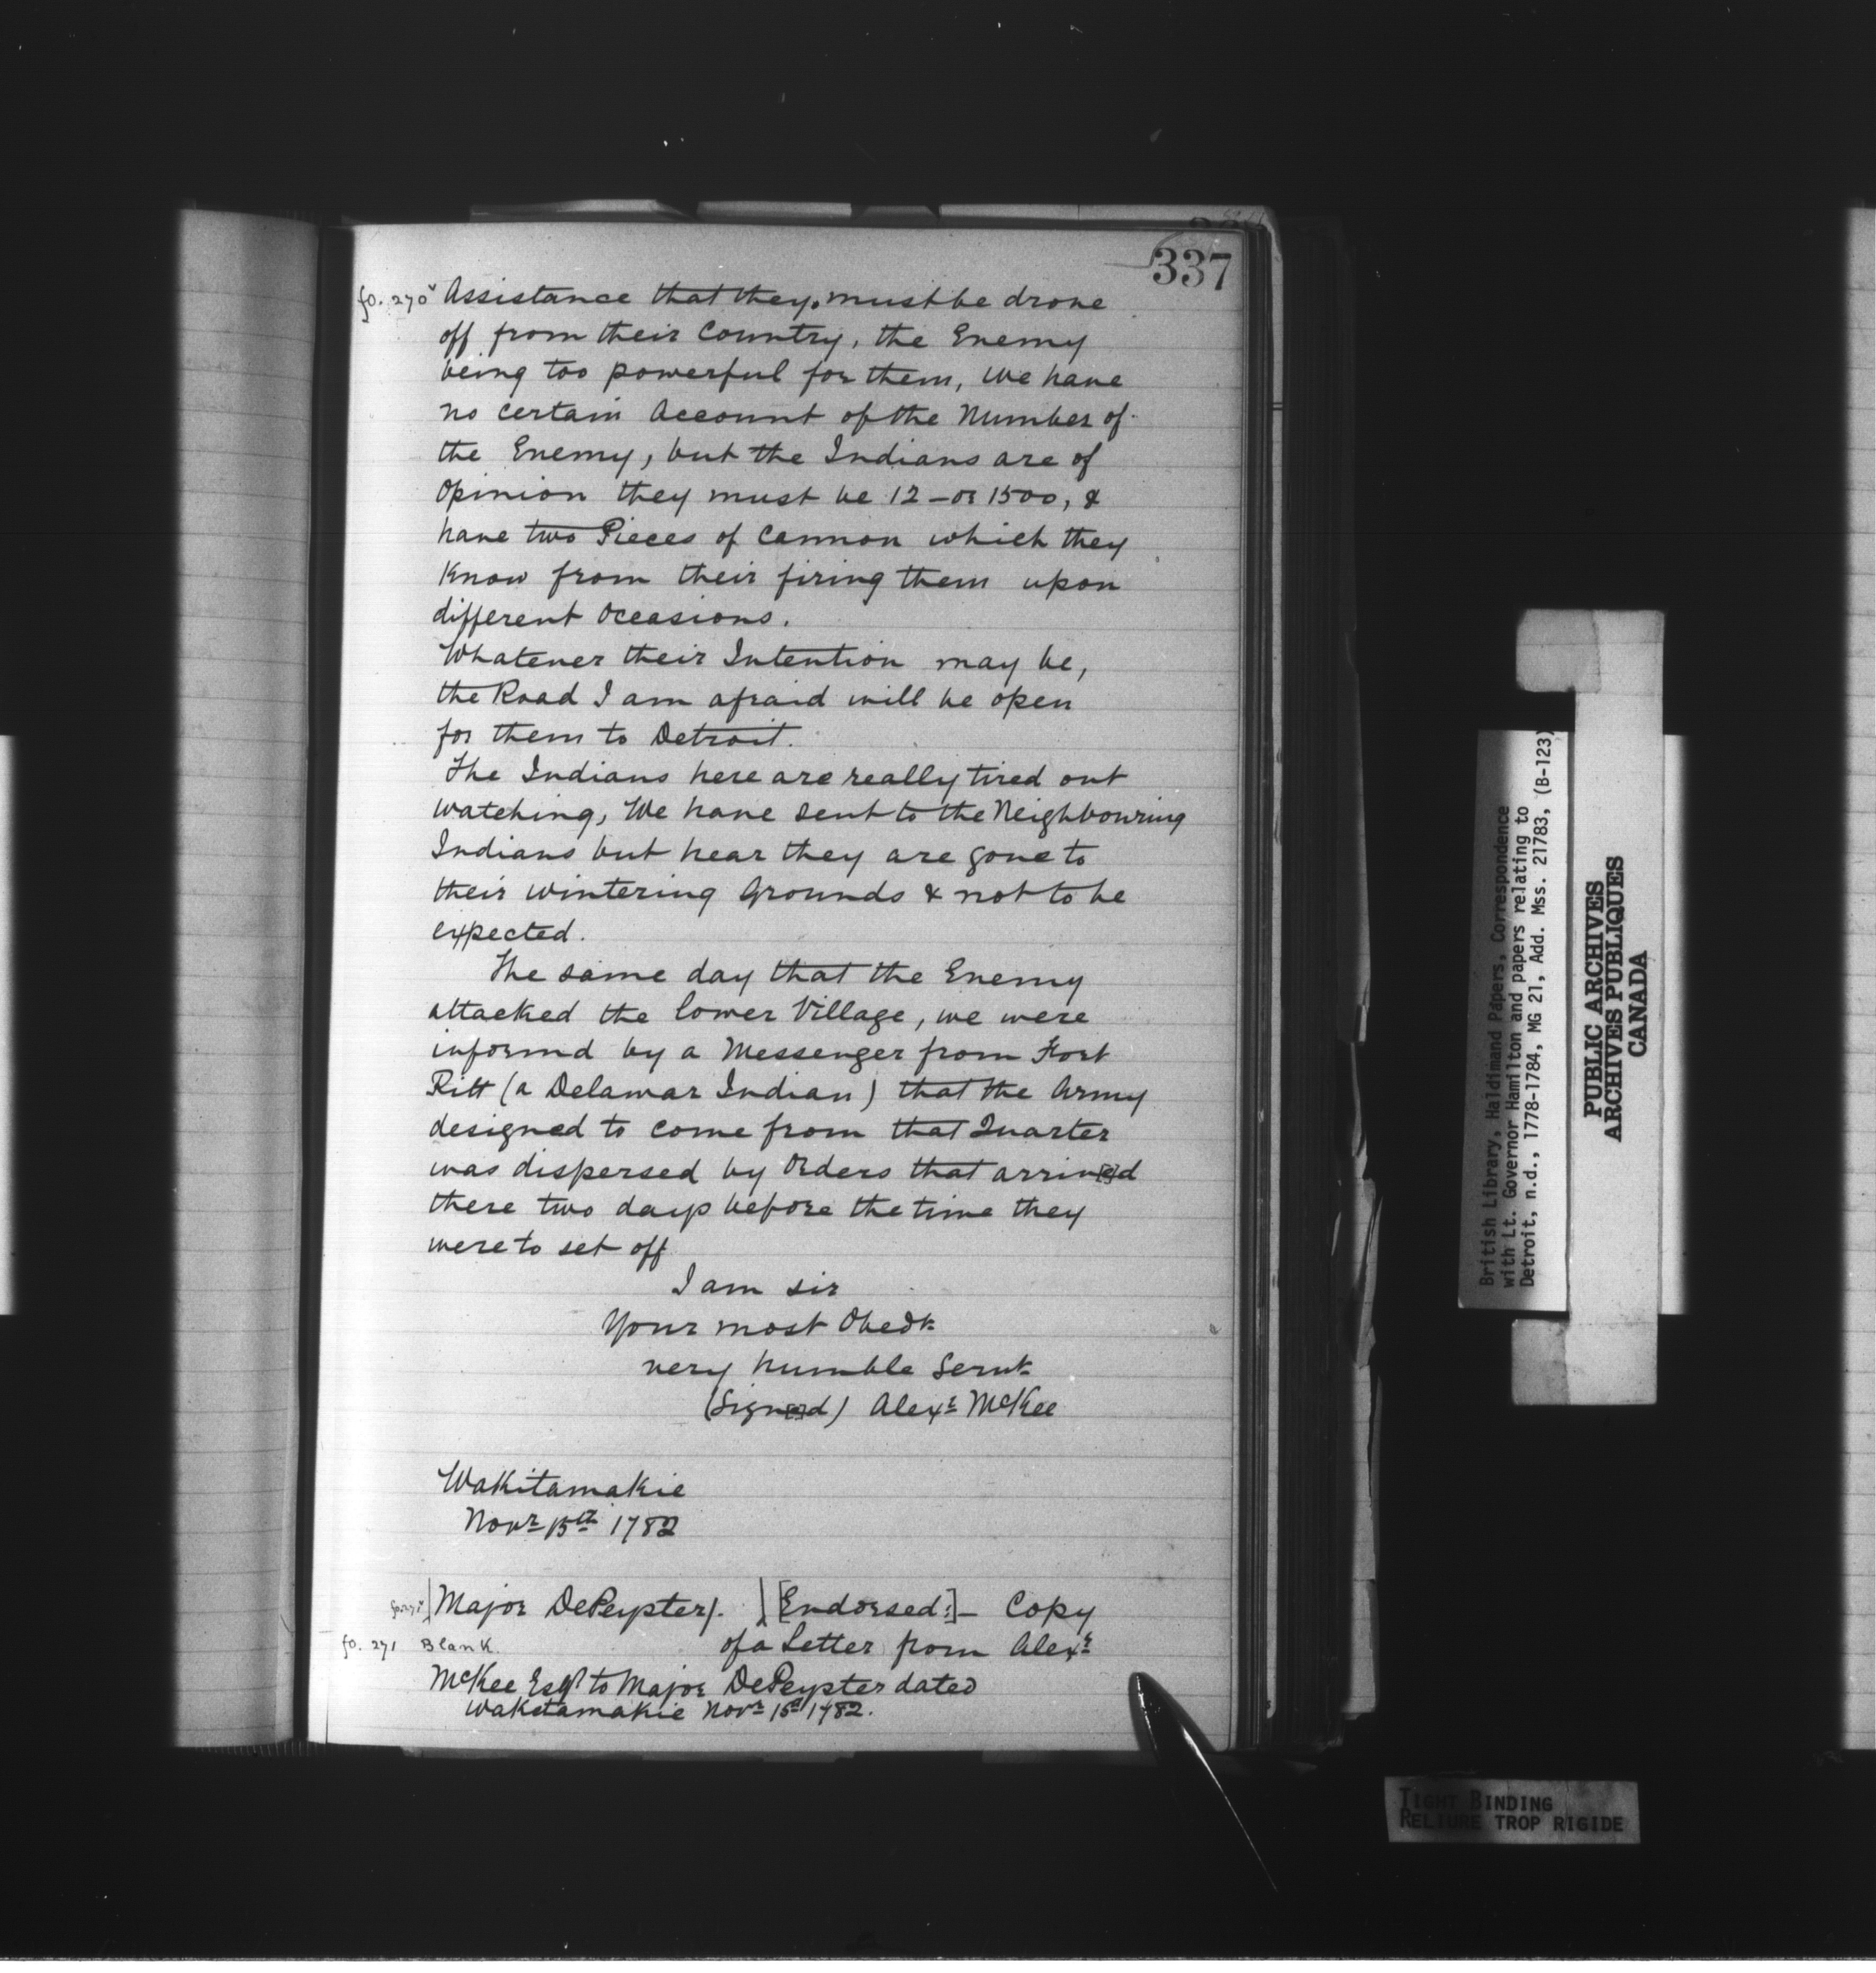 337
fo. 270v Assistance that they must be drove
off from their Country, the Enemy
being too powerful for them, we have
no certain Account of the Number of
the Enemy, but the Indians are of
Opinion they must be 12 – or 1500, &
have two Pieces of Cannon which they
know from their firing them upon
different Occasions.
Whatever their Intention may be,
the Road I am afraid will be open
for them to Detroit.
The Indians here are really tired out
watching, We have sent to the Neighbouring
Indians but hear they are gone to
their wintering Grounds & not to be
expected.
The same day that the Enemy
attacked the lower Village, we were
informd by a Messenger from Fort
Pitt (a Delawar Indian) that the Army
designed to come from that Quarter
was dispersed by Orders that arriv[e]d
there two days before the time they
were to set off
I am sir
Your most Obedt
very humble Servt
(Sign[e]d) Alexr McKee
Wakitamakie
Novr 15th 1782
Major DePeyster). [Endorsed:] – Copy
fo. 271 Blank. of a Letter from Alexr
McKee Esqr to Major DePeyster dated
Waketamakie Novr 15th 1782.
British Library, Haldimand Papers, Correspondence
with Lt. Governor Hamilton and papers relating to
Detroit, n.d., 1778-1784, MG 21, Add. Mss. 21783, (B-123)
PUBLIC ARCHIVES
ARCHIVES PUBLIQUES
CANADA
TIGHT BINDING
RELIURE TROP RIGIDE